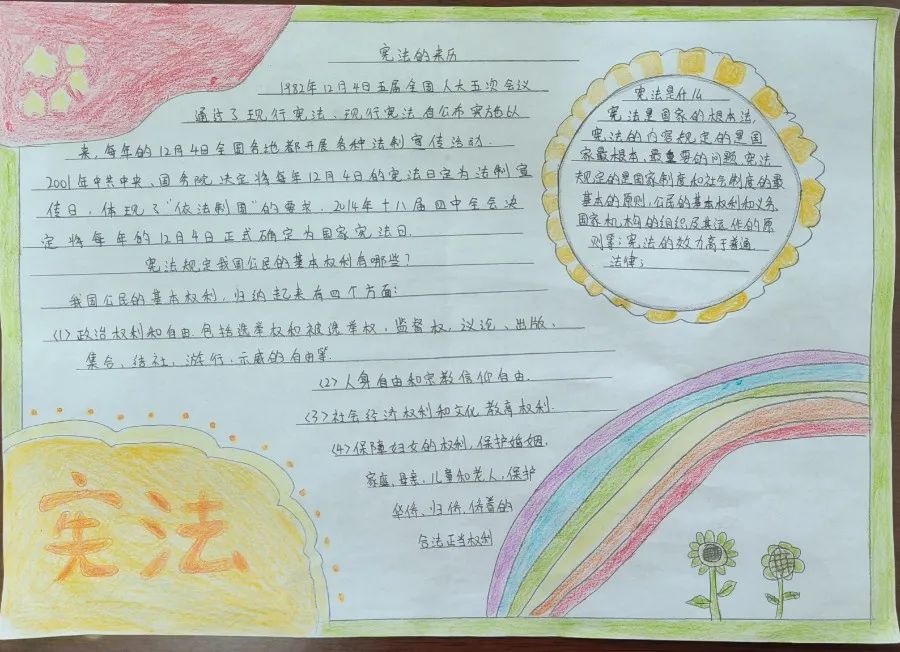 宪法的来历
1982年12月4日五届全国人大五次会议
通过了现行宪法、现行宪法自公布实施以
来，每年的12月4日全国各地都开展各种法制宣传活动．
2001年中共中央、国务院决定将每年12月4日的宪法日定为法制宣
传日，体现了"依法制国"的要求．2014年十八届四中全会决
定将每年的12月4日正式确定为国家宪法日．
宪法规定我国公民的基本权利有哪些？
我国公民的基本权利，归纳起来有四个方面：
(1)政治权利和自由．包括选举权和被选举权，监督权，议论、出版、
集合、结社、游行、示威的自由等．
(2)人身自由和宗教信仰自由．
(3)社会经济权利和文化教育权利．
(4)保障妇女的权利，保护婚姻，
家庭、母亲、儿童和老人，保护
华侨、归侨、侨眷的
合法正当权利
宪法是什么
宪法是国家的根本法，
宪法的内容规定的是国
家最根本、最重要的问题，宪法
规定的是国家制度和社会制度的最
基本的原则，公民的基本权利和义务，
国家机构的组织及其运作的原
则等；宪法的效力高于普通
法律；
宪法